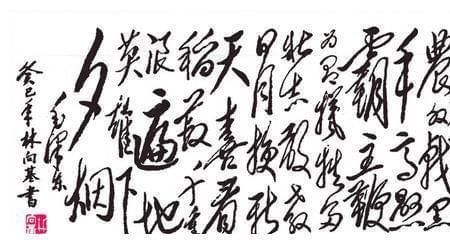 農奴戟黑
手高悬
霸主鞭
为有犧牲多
壮志敢教
日月换新
天喜看
稻菽千重
浪遍地
英雄下
夕烟
毛泽东
癸巳年林向基書